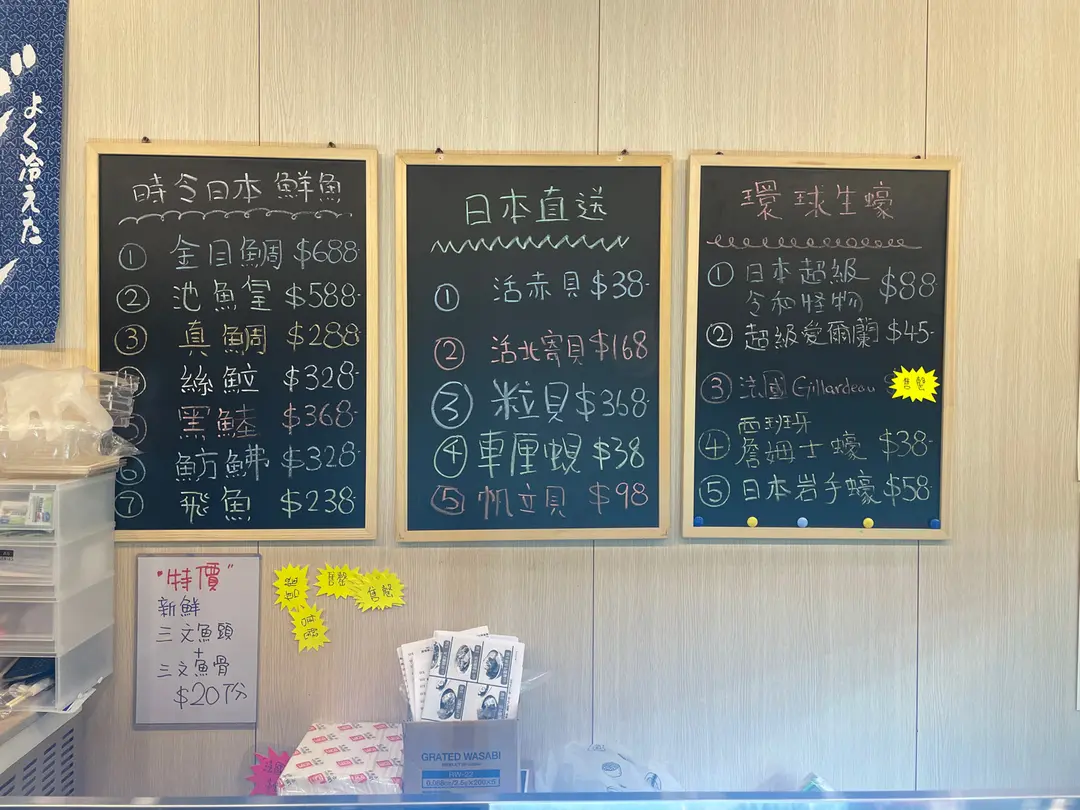 よく冷えた
時令日本鮮魚
① 金目鯛 $688-
② 池魚皇 $588-
③ 真鯛 $288-
絲魽 $328-
黑鮭 $368-
魴鮄 $328-
⑦ 飛魚 $238-
日本直送
① 活赤貝 $38-
② 活北寄貝 $168
③ 粒貝 $368-
④ 車厘蜆 $38
⑤ 帆立貝 $98
環球生蠔
① 日本超級
令和怪物 $88-
② 超級愛爾蘭 $45-
③ 法國 Gillardeau 售罄
西班牙
④ 詹姆士蠔 $38-
⑤ 日本岩手蠔 $58-
"特價"
新鮮
三文魚頭
+
三文魚骨
$20/份
售罄
售罄
GRATED WASABI
RW-22